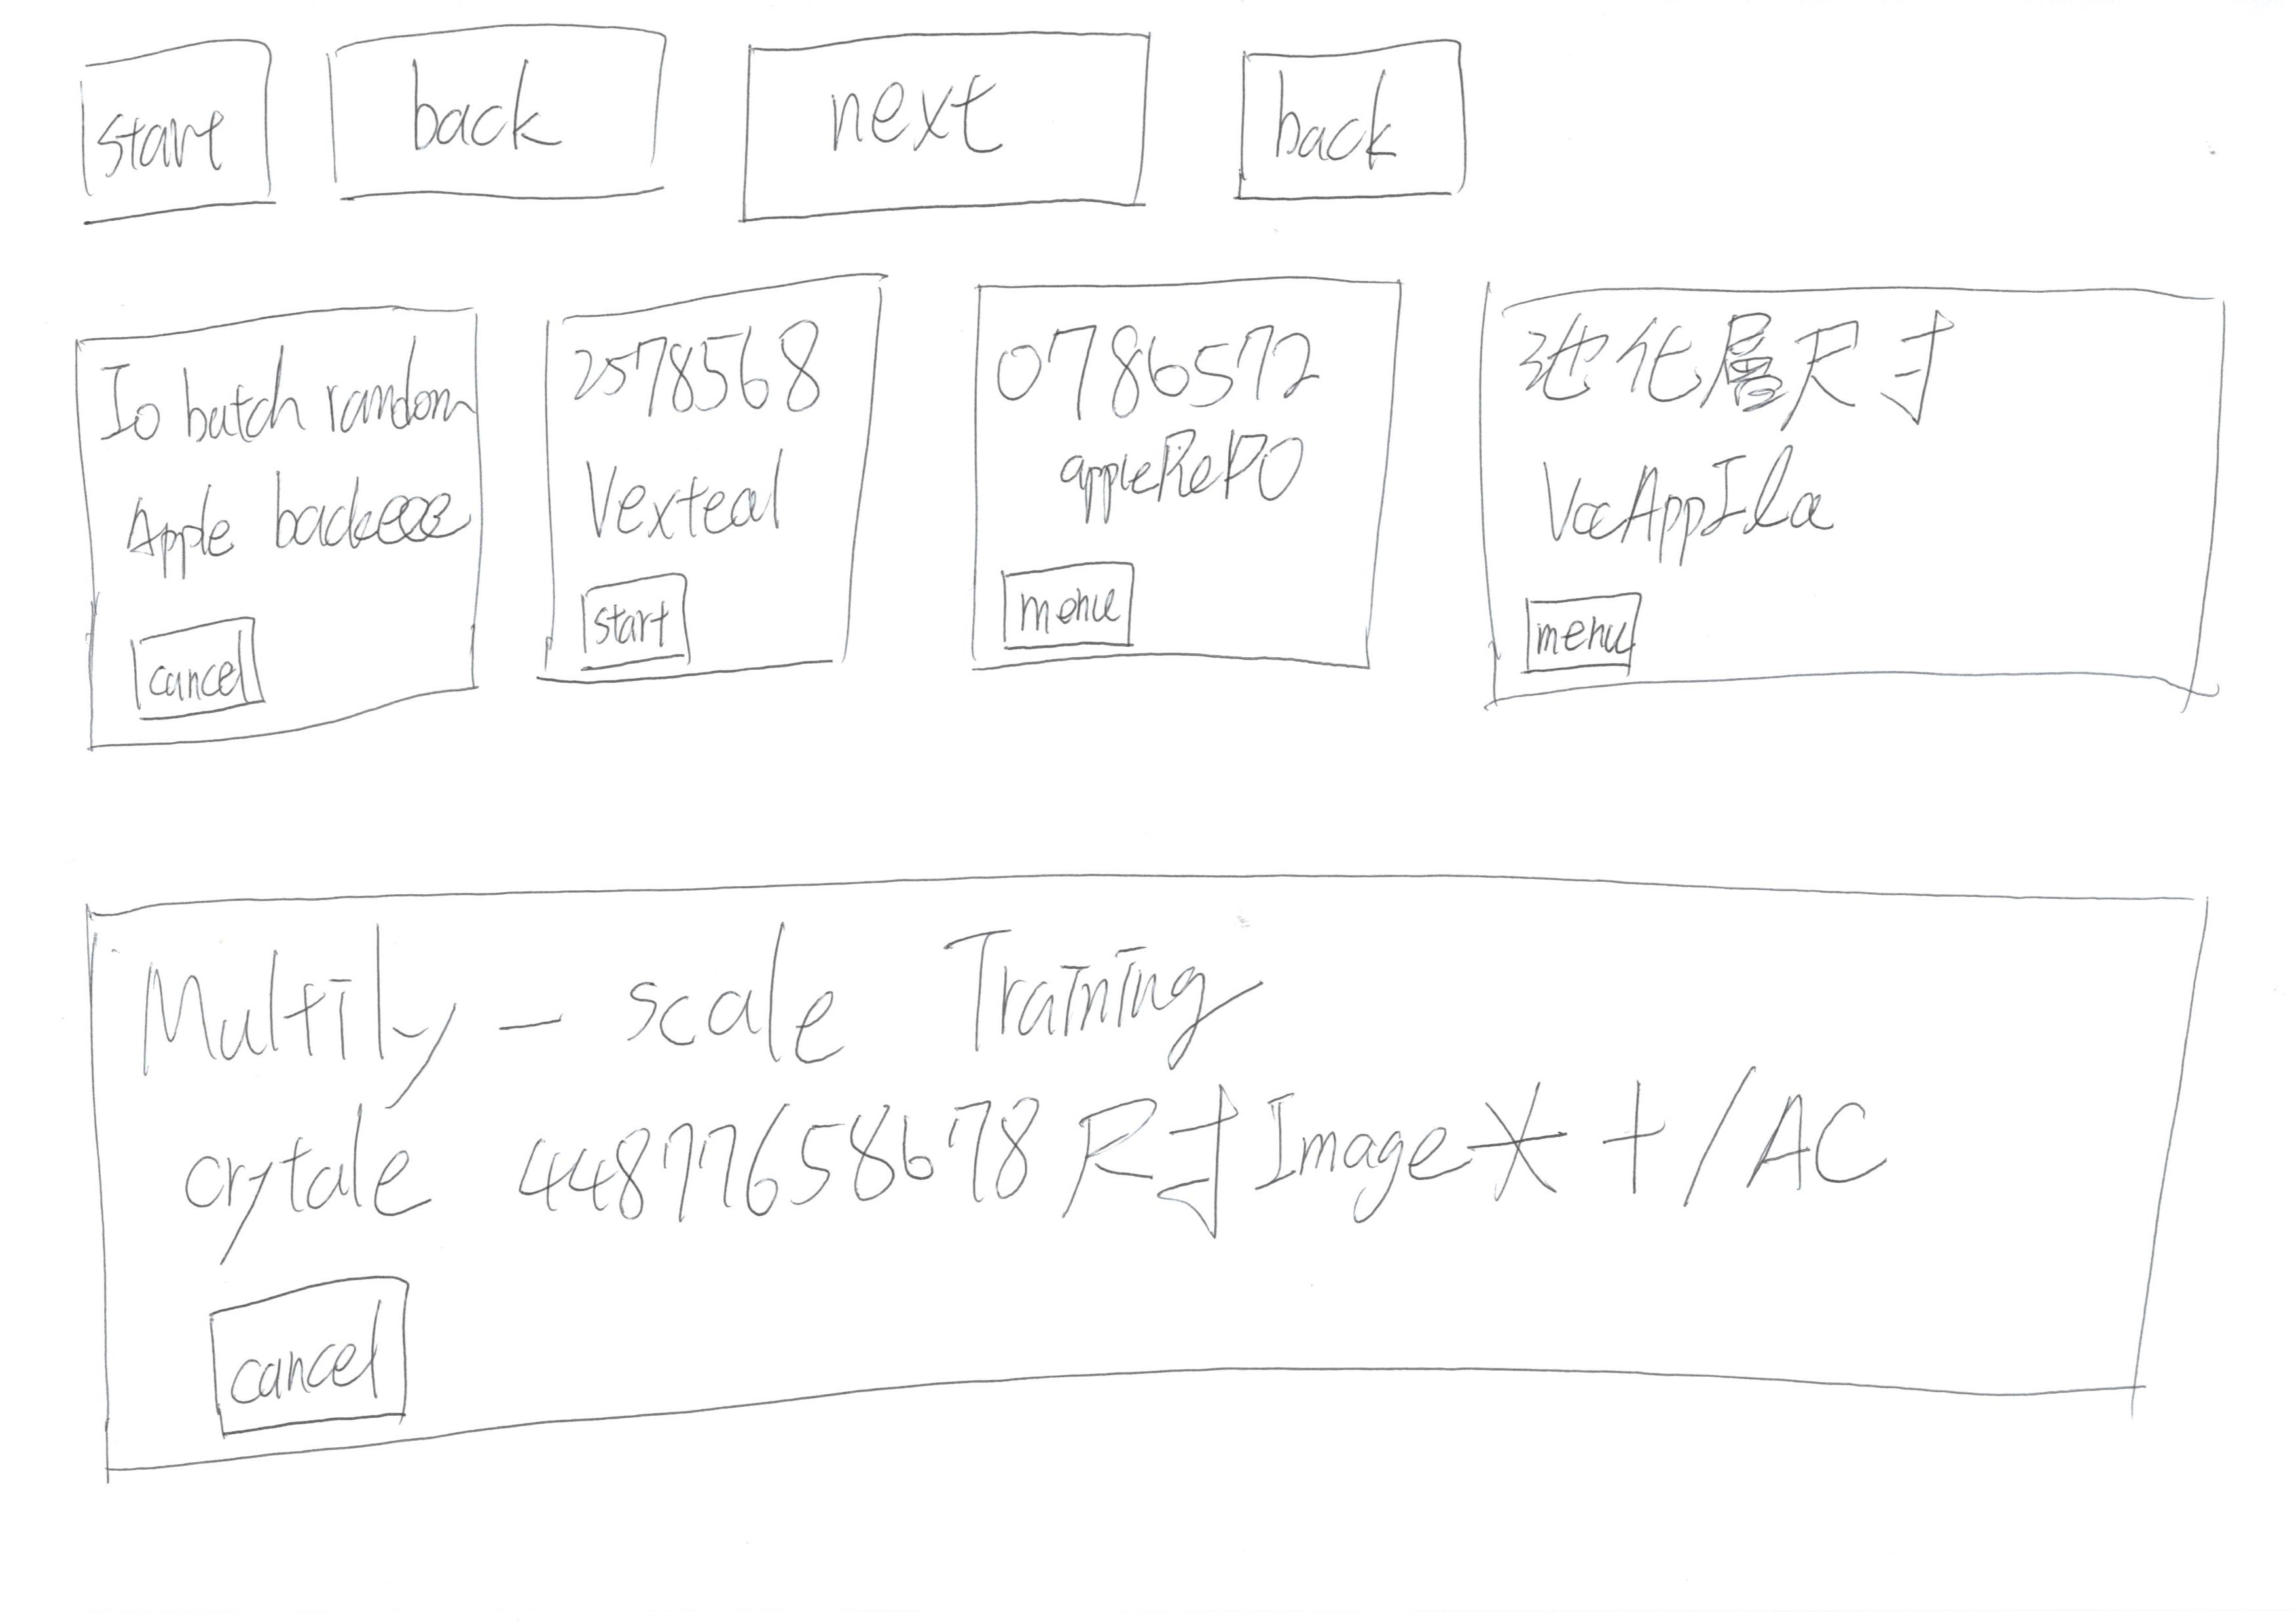 start back next back
Io batch random
Apple back
cancel
2578568
Vexteal
start
0786572
appleRePO
menu
池化層尺寸
menu
Multily - scale Training
crytale 44877658678尺寸Image * + / AC
cancel